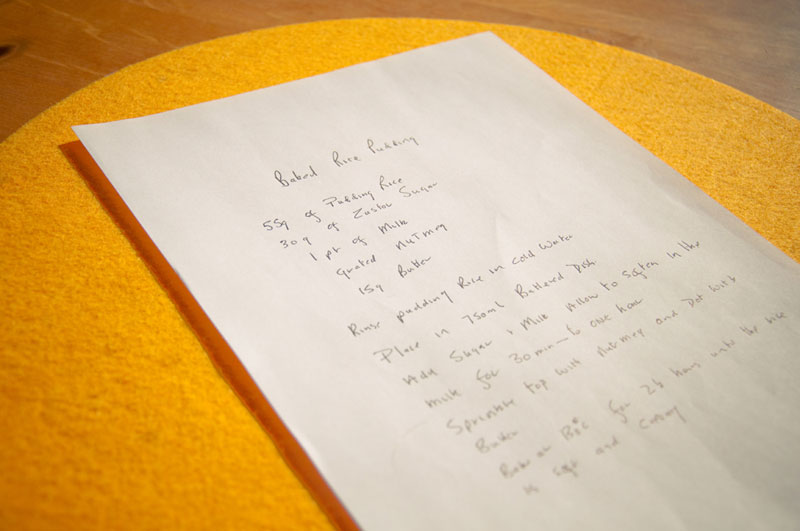 Baked Rice Pudding
55g of Pudding Rice
30g of Caster Sugar
1 pt of Milk
grated Nutmeg
15g Butter
Rinse pudding Rice in cold water
Place in 750ml Buttered Dish
Add Sugar + Milk Allow to soften in the
milk for 30 min to one hour
Sprinkle top with Nutmeg and Dot with
Butter
Bake at for 2½ hours until the rice
is soft and creamy